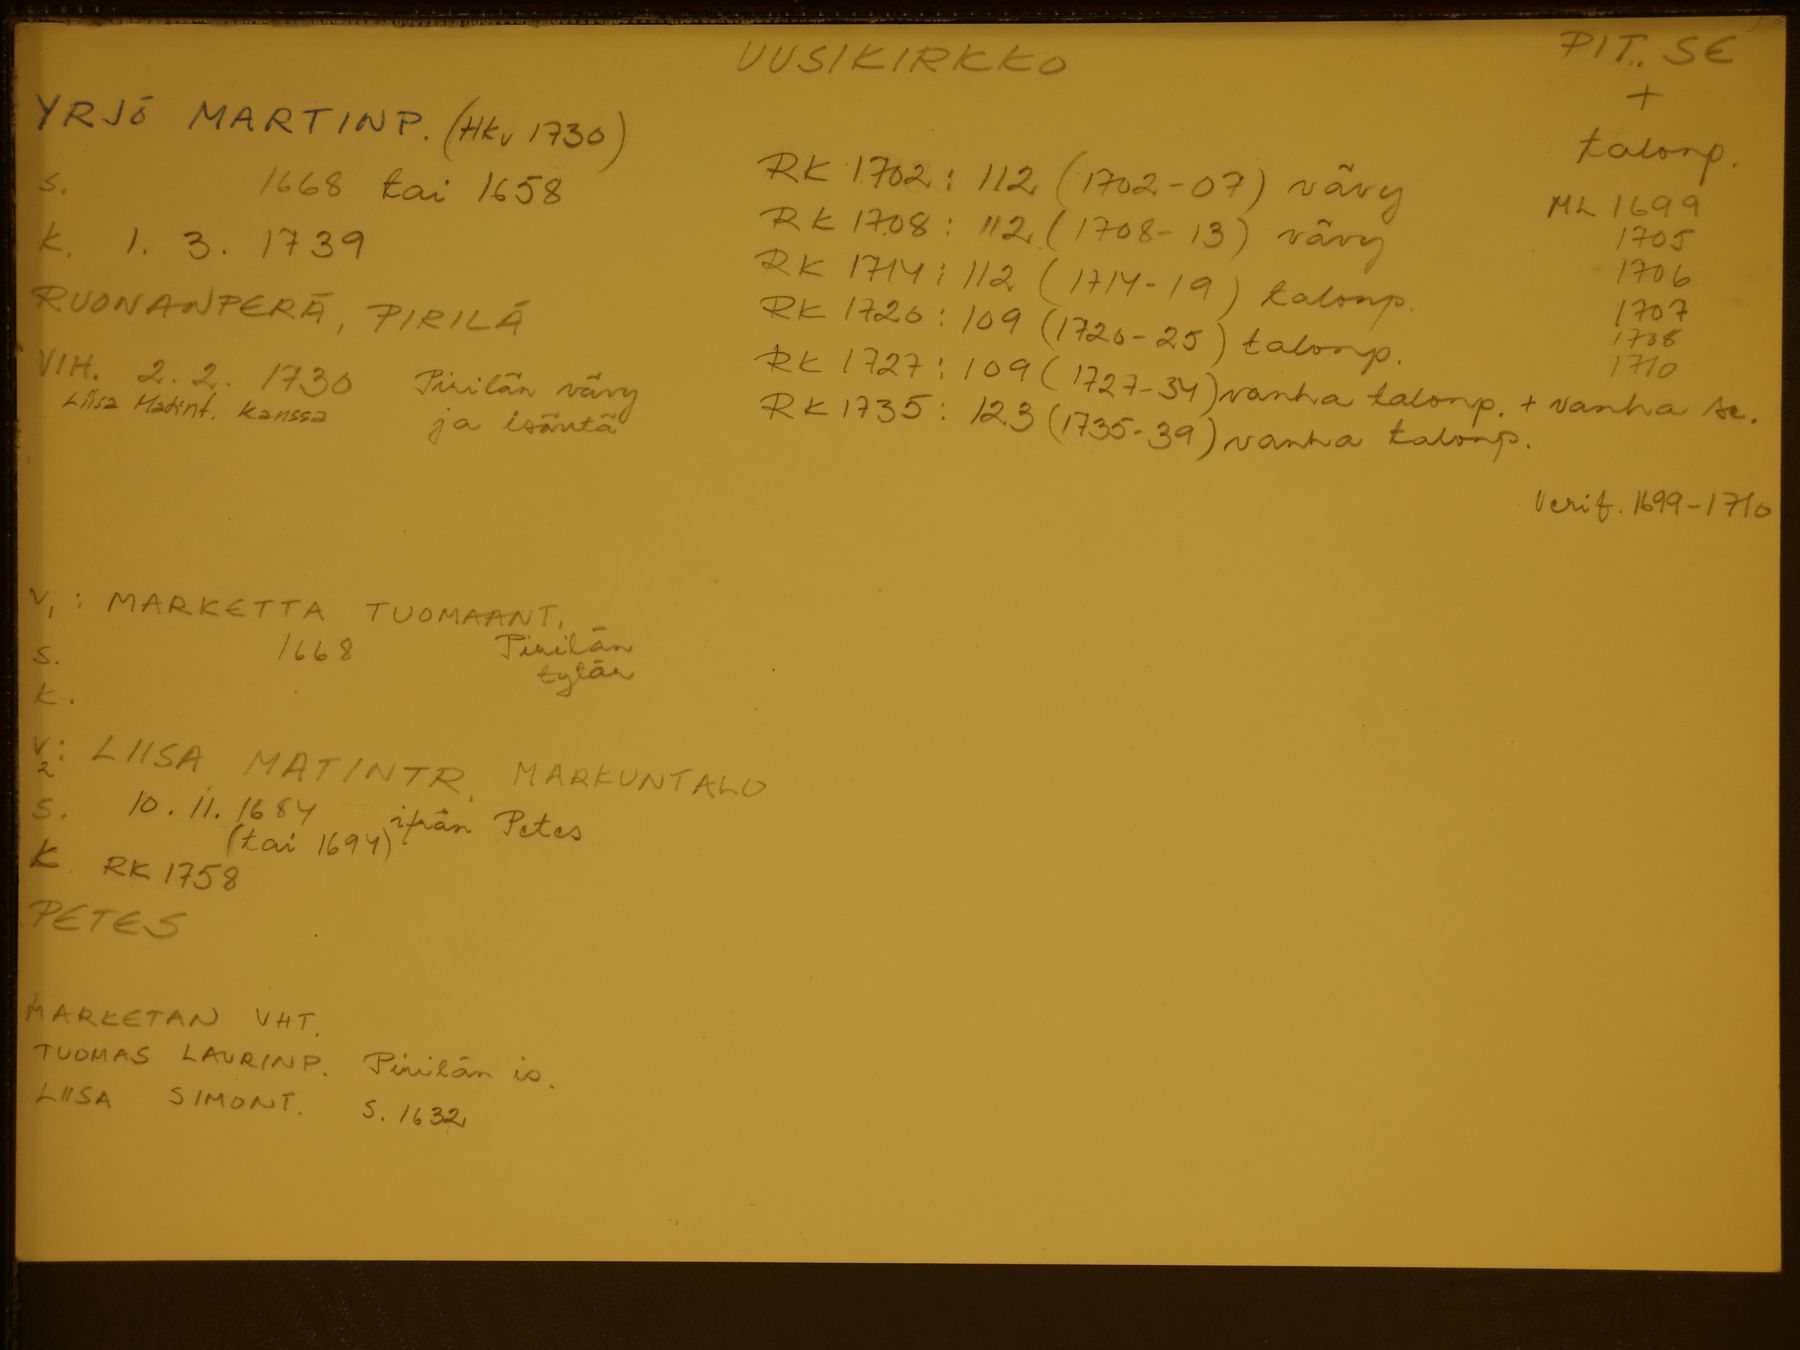 UUSIKIRKKO
PIT. SE
+
talonp.
YRJÖ MARTINP. (HKv 1730)
s. 1668 tai 1658
k. 1. 3. 1739
RUONANPERÄ, PIRILÄ
VIH. 2. 2. 1730 Pirilän vävy
Liisa Matint. kanssa ja isäntä
RK 1702: 112 (1702-07) vävy
RK 1708: 112 (1708-13) vävy
RK 1714: 112 (1714-19) talonp.
RK 1720: 109 (1720-25) talonp.
RK 1727: 109 (1727-34) vanha talonp. + vanha se.
RK 1735: 123 (1735-39) vanha talonp.
ML 1699
1705
1706
1707
1708
1710
Verif. 1699-1710
V1: MARKETTA TUOMAANT.
s. 1668 Pirilän
tytär
k.
V2: LIISA MATINTR. MARKUNTALO
s. 10. 11. 1684 ifrån Petes
(tai 1694)
K RK 1758
PETES
MARKETAN VHT.
TUOMAS LAURINP. Pirilän is.
LIISA SIMONT. s. 1632